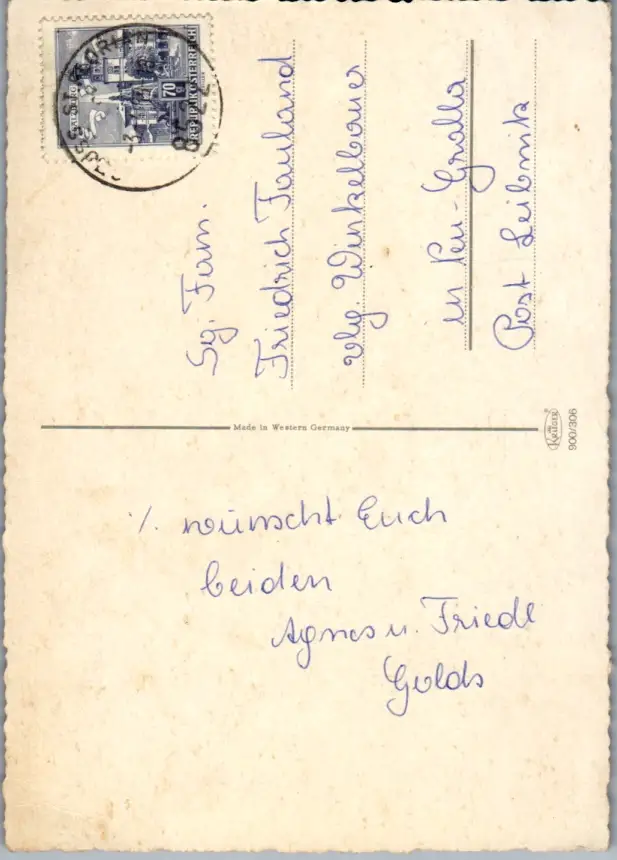 REPUBLIK ÖSTERREICH
70
Sg. Fam.
Friedrich Fauland
vlg. Winkelbauer
in Neu-Gralla
Post Leibnitz
Made in Western Germany
KRÜGER
900/306
./. wünscht Euch
beiden
Agnes u. Friedl
Golds